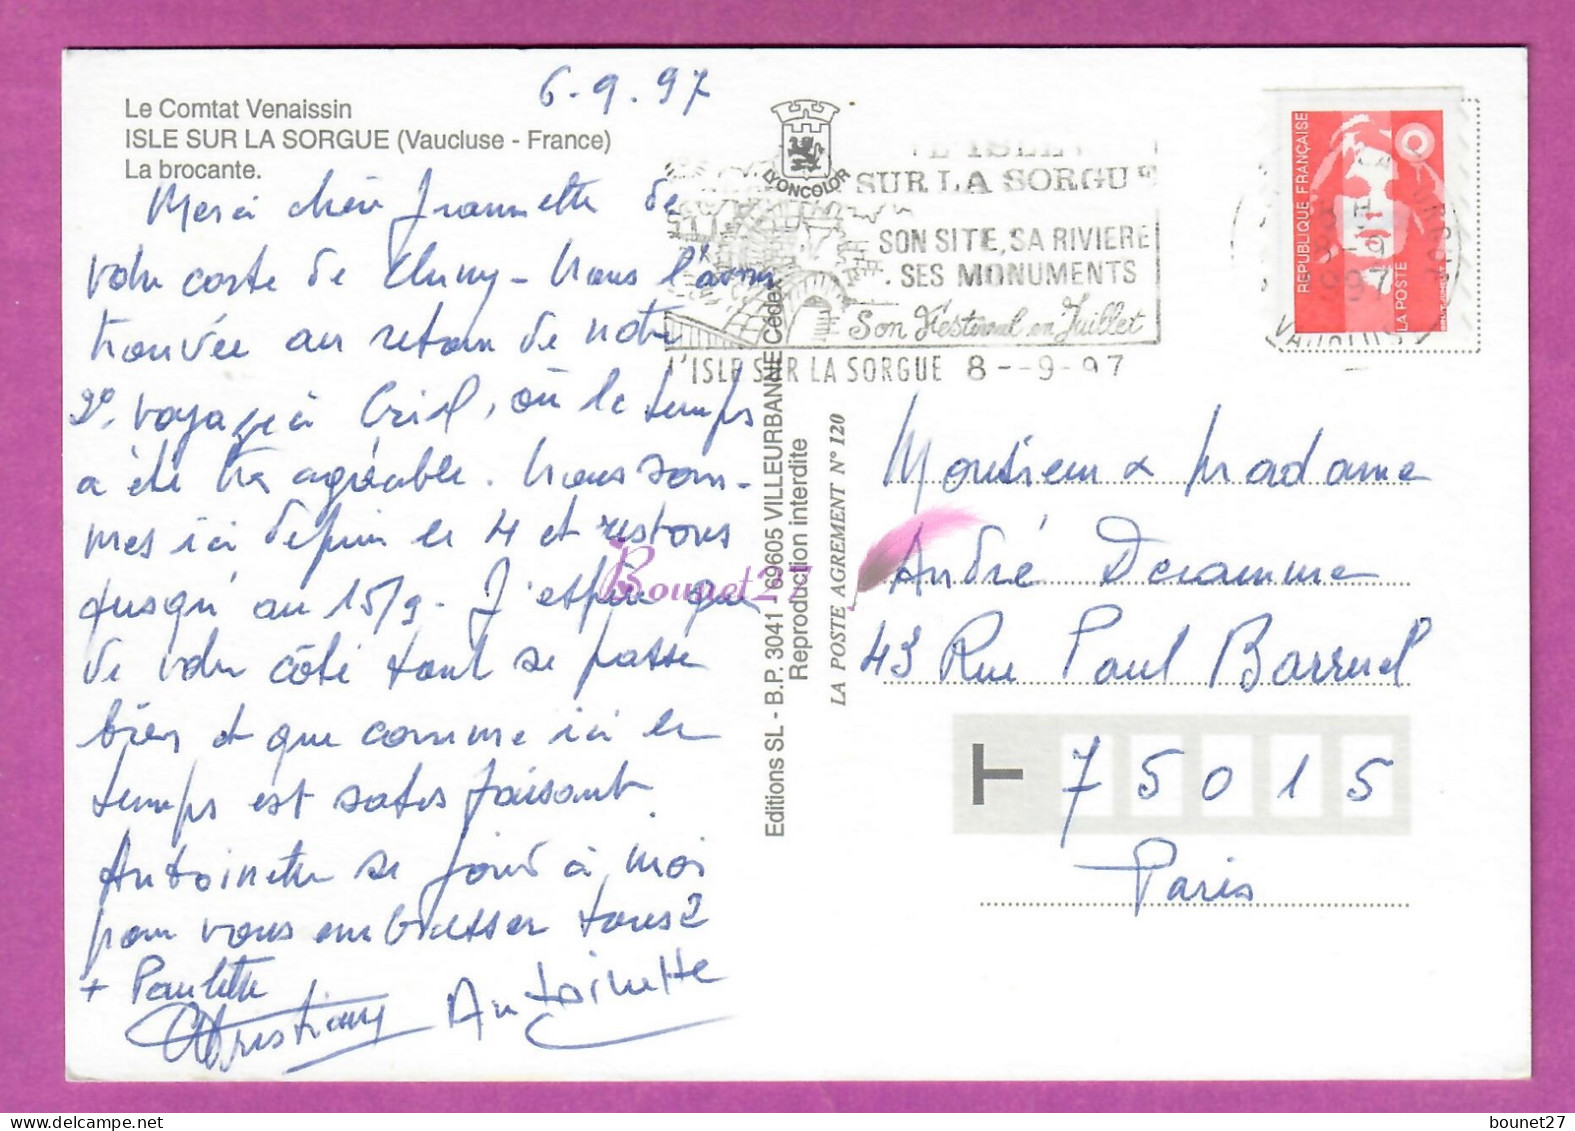 6.9.97
Le Comtat Venaissin
ISLE SUR LA SORGUE (Vaucluse - France)
La brocante.
Merci chère Jeannette de
votre carte de Cluny - Nous l'avons
trouvée au retour de notre
2e voyage à Creil, où le temps
a été très agréable. Nous som-
mes ici depuis le 4 et restons
jusqu'au 15/9. J'espère que
de votre côté tout se passe
bien et que comme ici le
temps est satisfaisant.
Antoinette se joint à moi
pour vous embrasser tous 2
+ Paulette
Christiany Antoinette
LYONCOLOR
L'ISLE
SUR LA SORGUE
SON SITE, SA RIVIERE
SES MONUMENTS
Son Festival en Juillet
L'ISLE SUR LA SORGUE 8--9-97
Editions SL - B.P. 3041 - 69605 VILLEURBANNE Cédex
Reproduction interdite
LA POSTE AGREMENT N° 120
REPUBLIQUE FRANÇAISE
LA POSTE
VAUCLUSE
Monsieur & Madame
André Deramme
43 Rue Paul Barruel
75015
Paris
Bounet27
bounet27